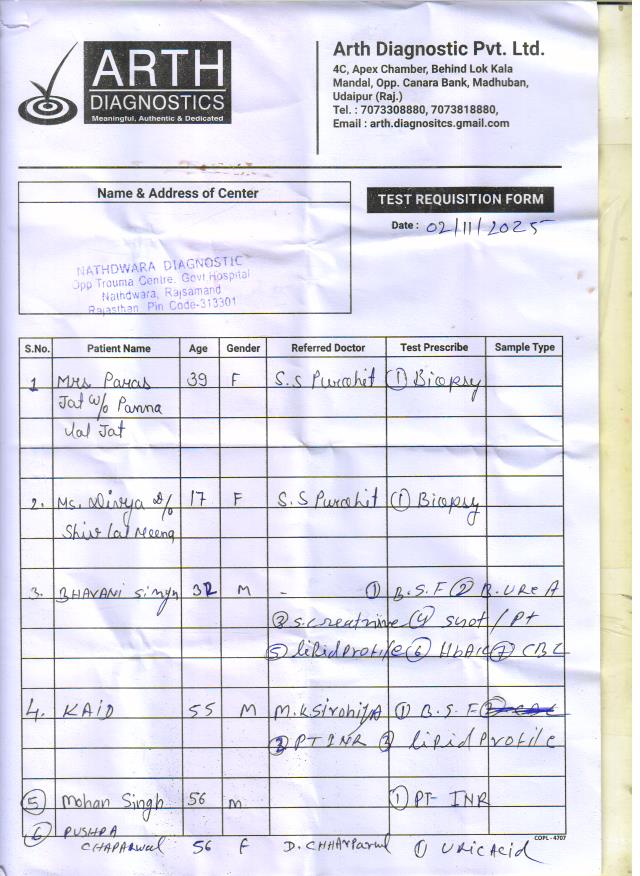 ARTH
DIAGNOSTICS
Meaningful, Authentic & Dedicated
Arth Diagnostic Pvt. Ltd.
4C, Apex Chamber, Behind Lok Kala
Mandal, Opp. Canara Bank, Madhuban,
Udaipur (Raj.)
Tel. : 7073308880, 7073818880,
Email : arth.diagnositcs.gmail.com
Name & Address of Center
NATHDWARA DIAGNOSTIC
Opp Trouma Centre. Govt Hospital
Nathdwara, Rajsamand
Rajasthan Pin Code-313301
TEST REQUISITION FORM
Date : 02/11/2025
S.No. Patient Name Age Gender Referred Doctor Test Prescribe Sample Type
1 Mrs Paras 39 F S.S Purohit ① Biopsy
Jat w/o Panna
lal Jat
2. Ms. Divya D/o 17 F S.S Purohit ① Biopsy
Shiv lal Meena
3. BHAVANI Singh 32 M - ① B.S.F ② B.UReA
③ S.creatnine ④ SGOT / PT
⑤ lipid profile ⑥ HbA1c ⑦ CBC
4. KAID 55 M M.K Sirohiya ① B.S.F
② PT INR ③ lipid profile
⑤ Mohan Singh 56 m ① PT- INR
⑥ PUSHPA
CHAPARWal 56 F D. CHHAPARWal ① URIC ACid
COPL - 4707